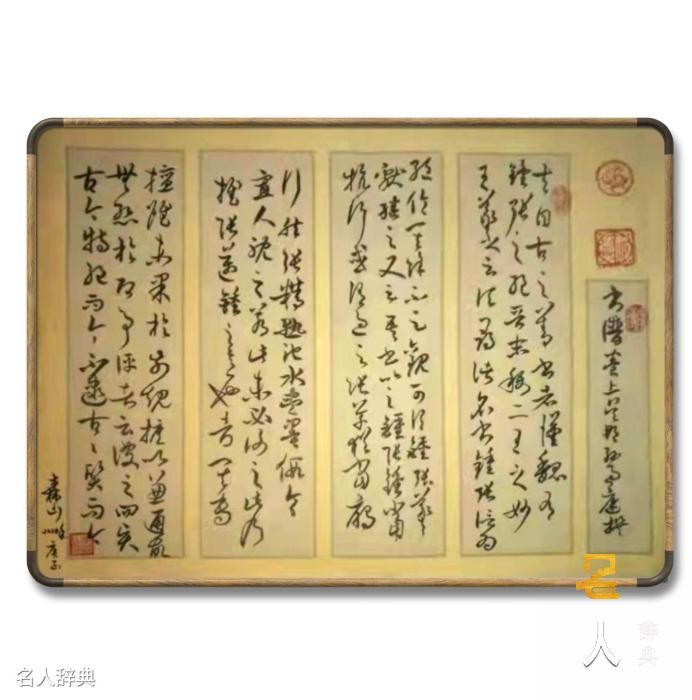 書譜卷上吳郡孫過庭撰
夫自古之善書者漢魏有
鍾張之絕晉末稱二王之妙
王羲之云頃尋諸名書鍾張信為
絕倫其餘不足觀可謂鍾張
獻繼之又云吾書比之鍾張鍾當
抗行或謂過之張草猶當雁
行然張精熟池水盡墨假令
寡人耽之若此未必謝之此乃
推張邁鍾之意也考其專
擅雖未果於前規摭以兼通故
無慚於即事評者云彼之四賢
古今特絕而今不逮古古質而今
森山
庚子
名人辞典
名人辞典